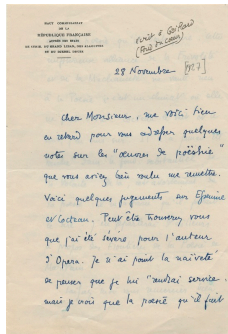 HAUT COMMISSARIAT
DE LA
RÉPUBLIQUE FRANÇAISE
AUPRÈS DES ÉTATS
DE SYRIE, DU GRAND LIBAN, DES ALAOUITES
ET DU DJEBEL DRUZE
écrit à
28 Novembre [1927]
Cher Monsieur, me voici bien
en retard pour vous adresser quelques
notes sur les "œuvres de poésie"
que vous aviez bien voulu me remettre.
Voici quelques jugements sur
et Cocteau. Peut être trouverez vous
que j'ai été sévère pour l'auteur
d'Opera. Je n'ai point la naïveté
de penser que je lui "rendrai service"
mais je crois que la poésie qu'il fuit